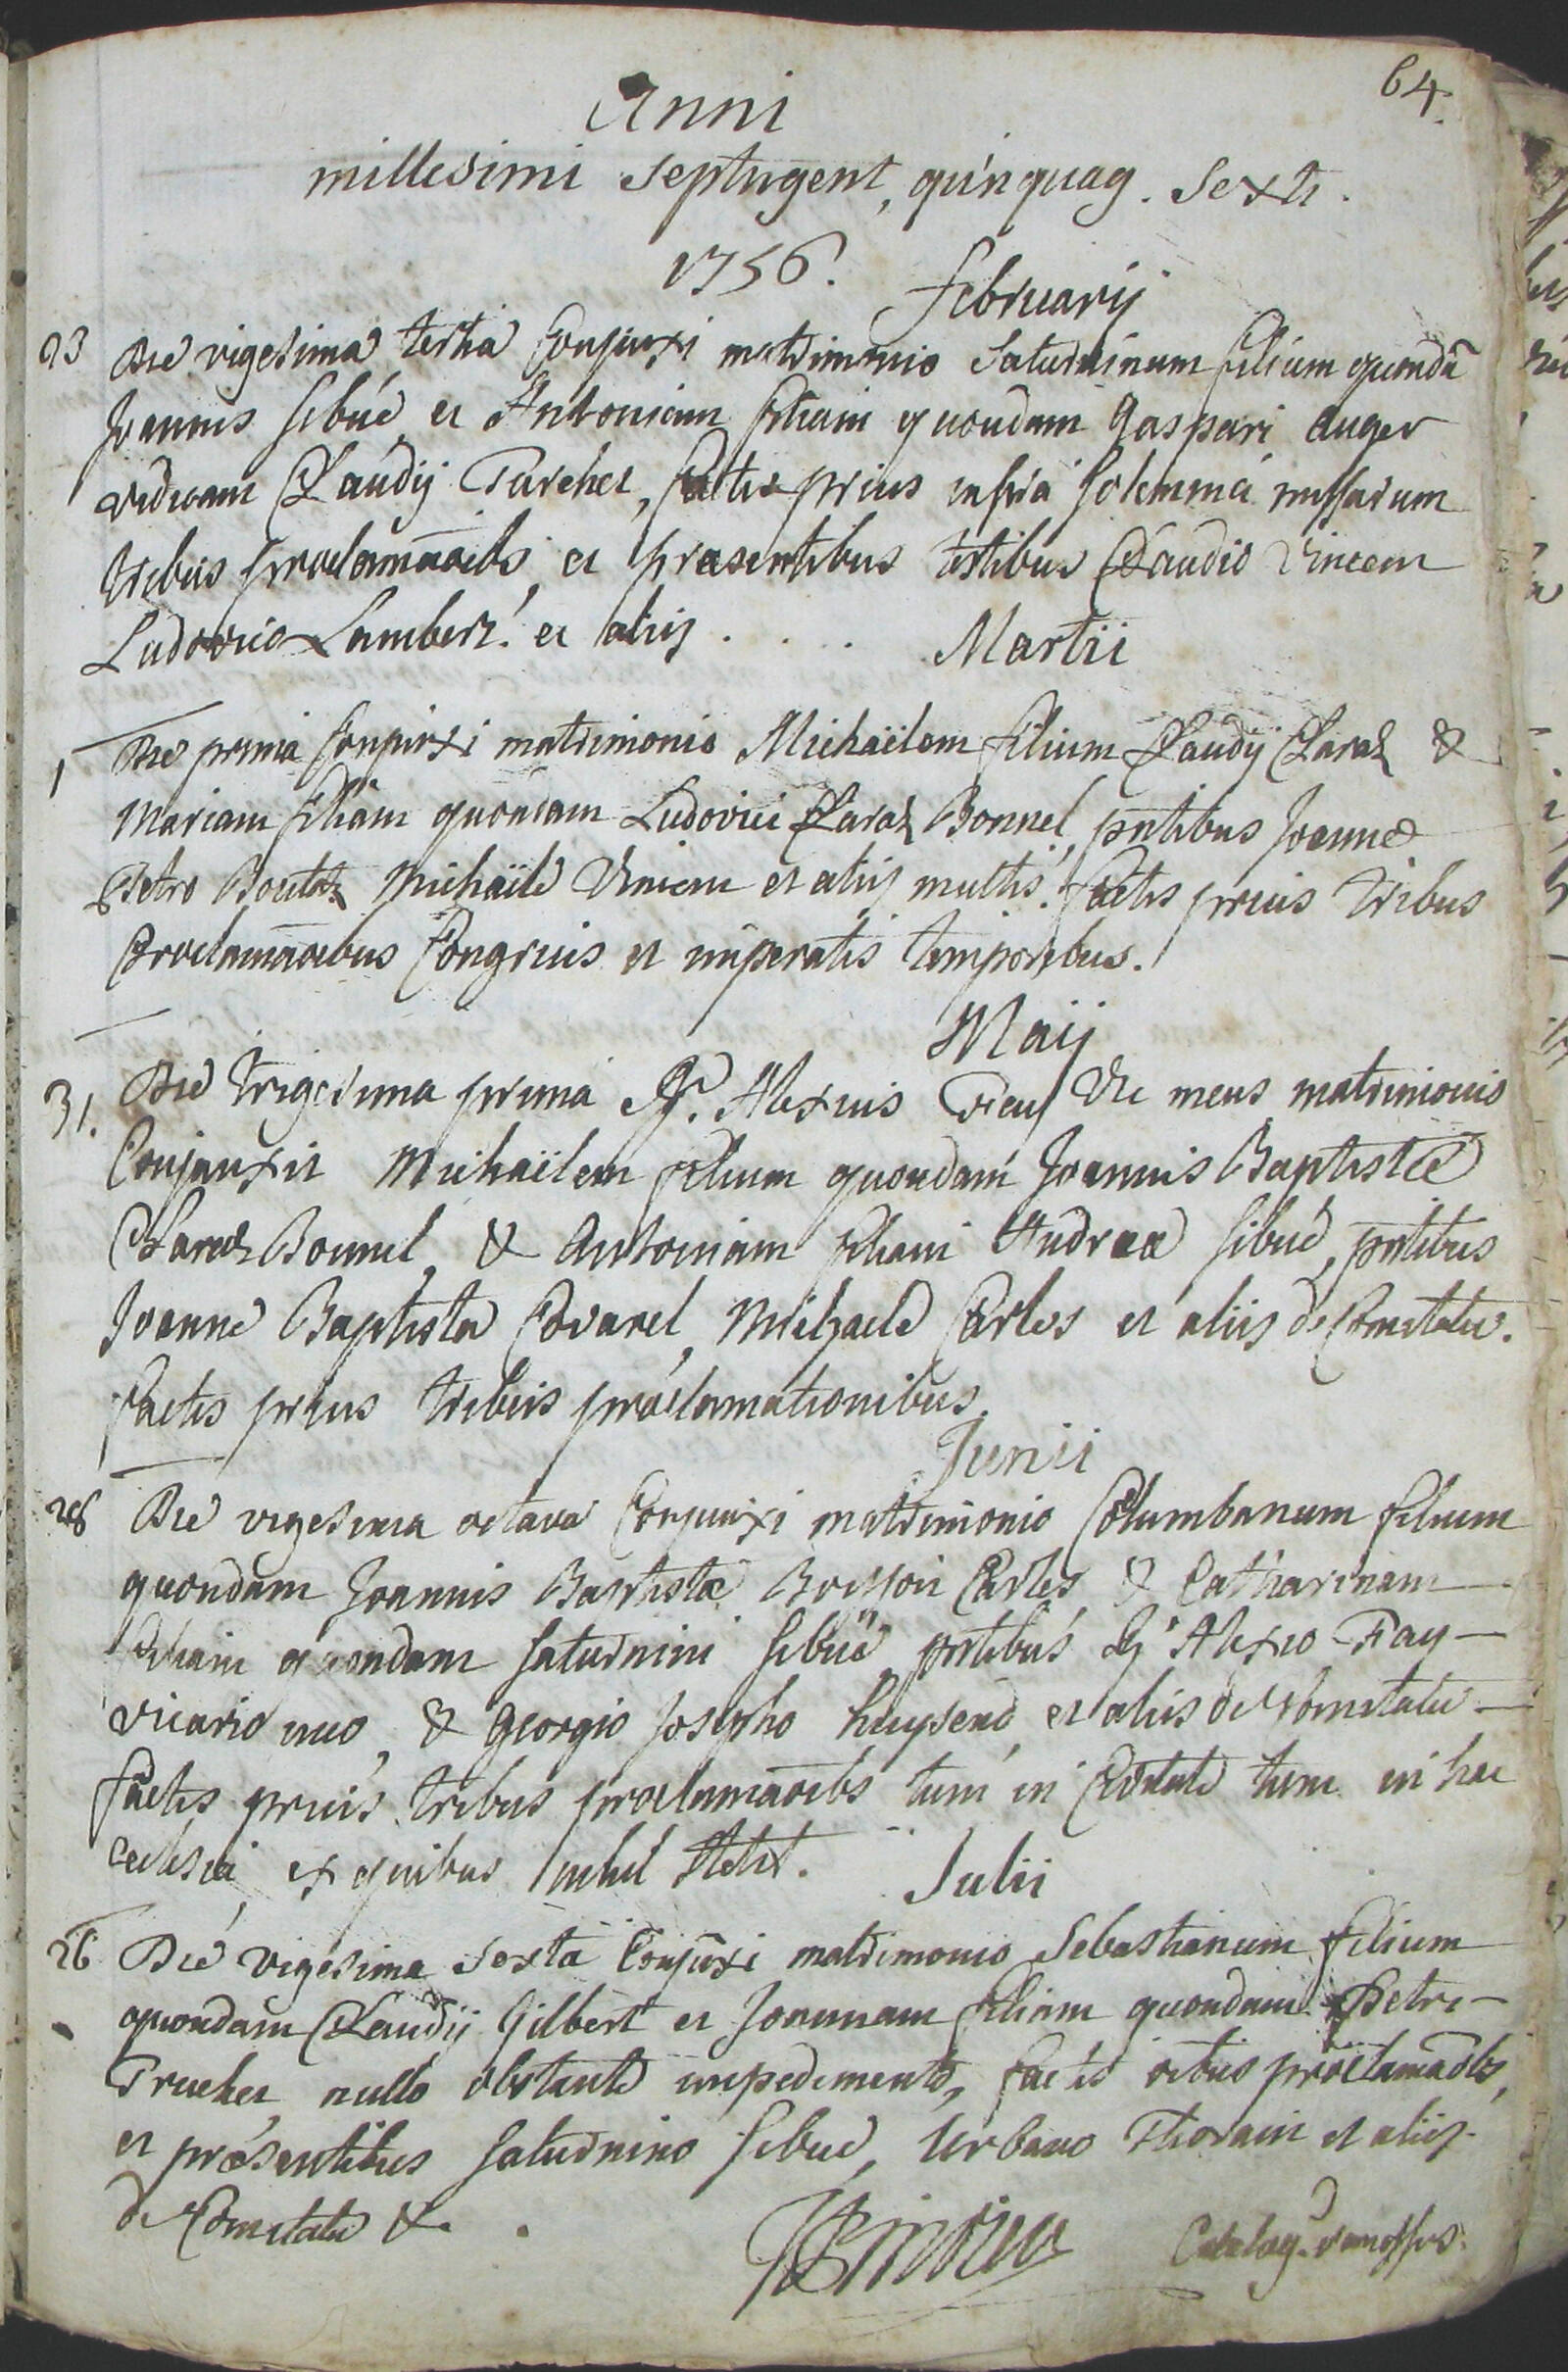 64.
Anni
millesimi septingent, quinquag. sexti.
1756.
februarij
23 Die vigesima tertia Conjunxi matrimonio Saturninum filium quondã
Joannis sibué et Antoniam filiam quondam Gaspari Auger
viduam Claudij Turchet, factis prius infrà solemnia missarum
tribus proclamãoibs et praesentibus testibus Claudio Vincent
Ludovico Lambert. et alijs . . . .
Martii
1 Die prima Conjunxi matrimonio Michaëlem filium Claudij Claraz &
Mariam filiam quondam Ludovici Claraz Bonnel, pntibus Joanne
Petro Boutaz Michaële Vincent et alijs multis. factis prius tribus
Proclamãoibus Congruis et imperatis temporibus.
Maij
31. Die trigesima prima Rd. Alexius Fay Vic meus matrimonio
Conjunxit Michaëlem filium quondam Joannis Baptistæ
Claraz Bonnel, & Antoniam filiam Andreæ sibué, pntibus
Joanne Baptista Covarel, Michaele Carles et aliis de Comitatu.
factis prius tribus proclamationibus.
Junii
28 Die vigesima octava Conjunxi matrimonio Columbanum filium
quondam Joannis Baptistæ Boisson Carles, & Catharinam
filiam quondam Saturnini sibué pntibus Rd Alexio Fay
vicario meo, & Georgio Josepho et aliis de Comitatu
factis prius tribus proclamãoibs tum in Civitate tum in hac
ecclesia, ex quibus nihil stetit.
Julii
26 Die vigesima sexta Conjũxi matrimonio Sebastianum filium
quondam Claudij Gilbert et Joannam filiam quondam Petri
Truchet nullo obstante impedimento, factis proclamãoibs,
et præsentibus Saturnino sibué, Urbano Thorain et aliis
de Comitatu &.
Catalog.